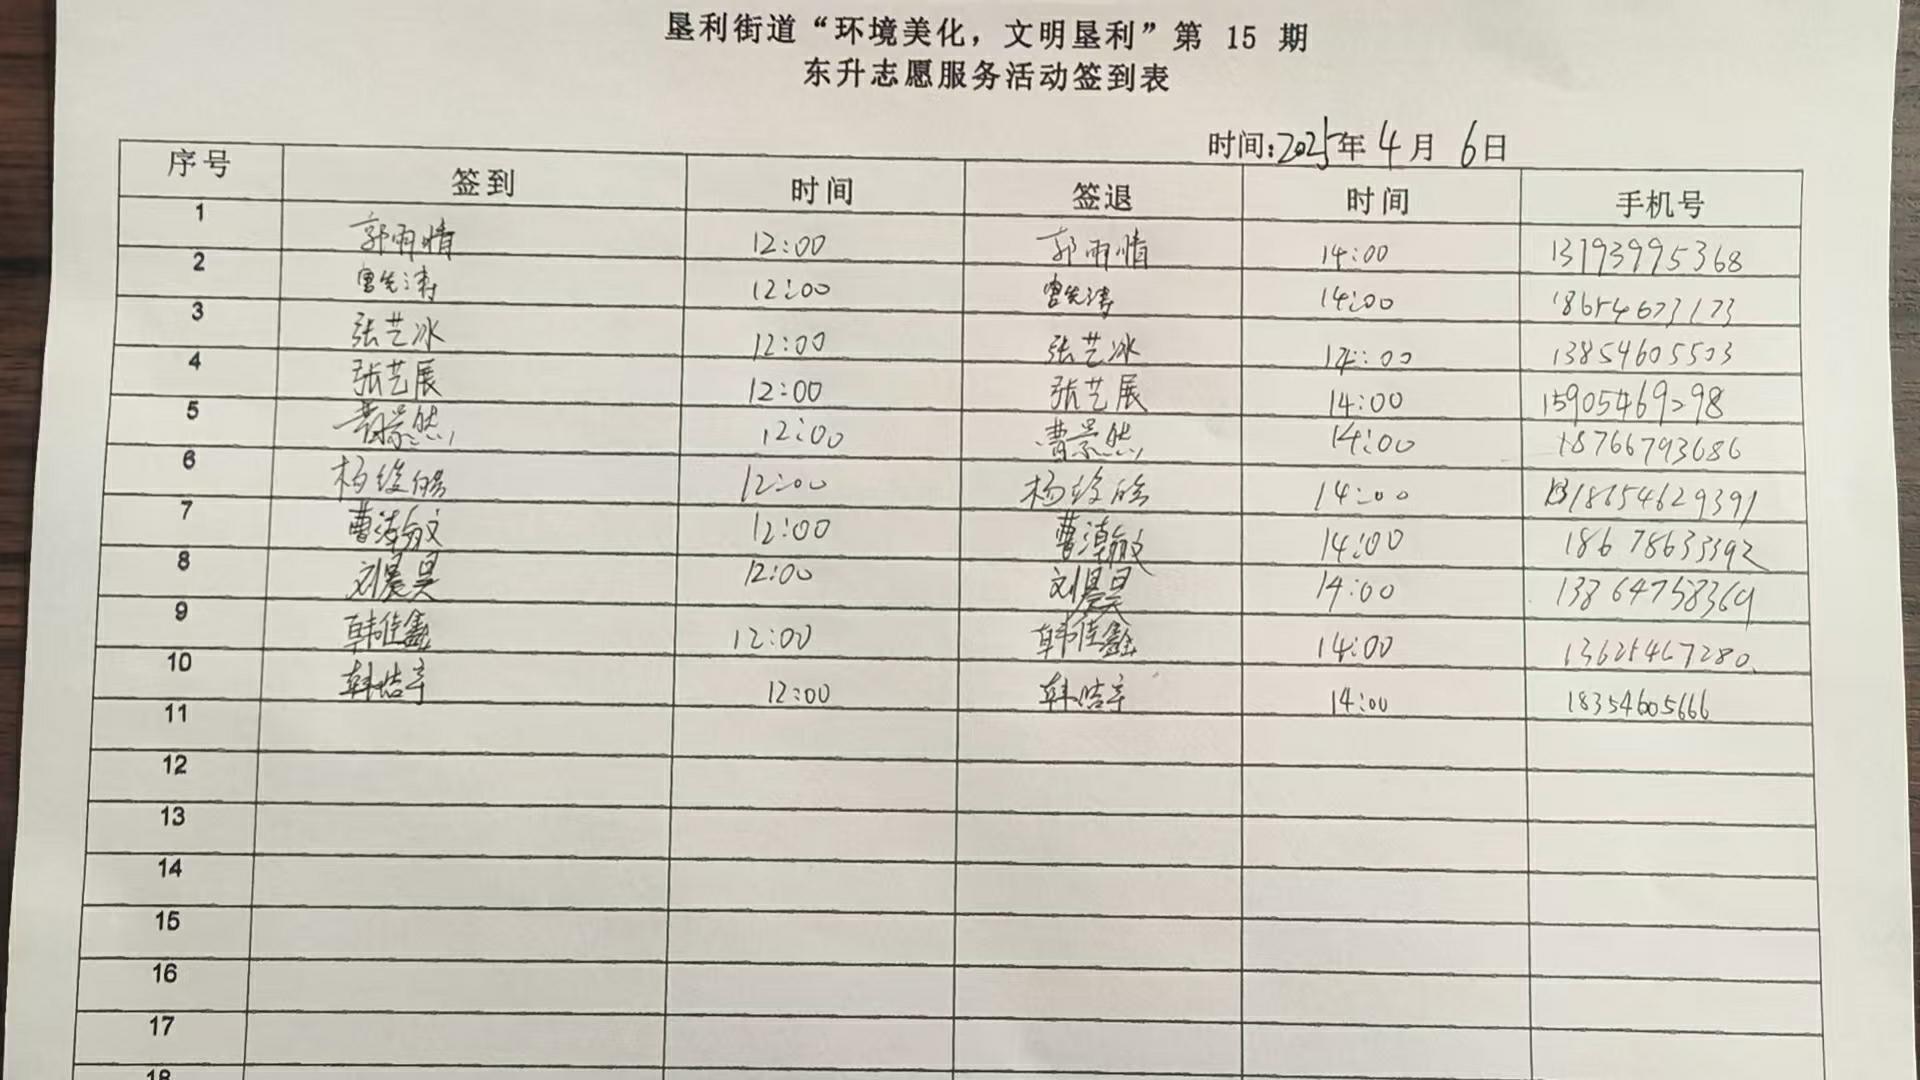 垦利街道“环境美化，文明垦利”第 15 期
东升志愿服务活动签到表
时间:2025年 4 月 6日
序号 签到 时间 签退 时间 手机号
1 郭雨情 12:00 郭雨情 14:00 13793995368
2 12:00 14:00 18654673173
3 张艺冰 12:00 张艺冰 14:00 13854605503
4 张艺展 12:00 张艺展 14:00 15905469298
5 曹景然 12:00 曹景然 14:00 18766793686
6 杨俊皓 12:00 杨俊皓 14:00 18654629391
7 12:00 14:00 18678633392
8 刘晨昊 12:00 刘晨昊 14:00 13864758369
9 韩佳鑫 12:00 韩佳鑫 14:00 13625467280
10 韩皓宇 12:00 韩皓宇 14:00 18354605666
11
12
13
14
15
16
17
18